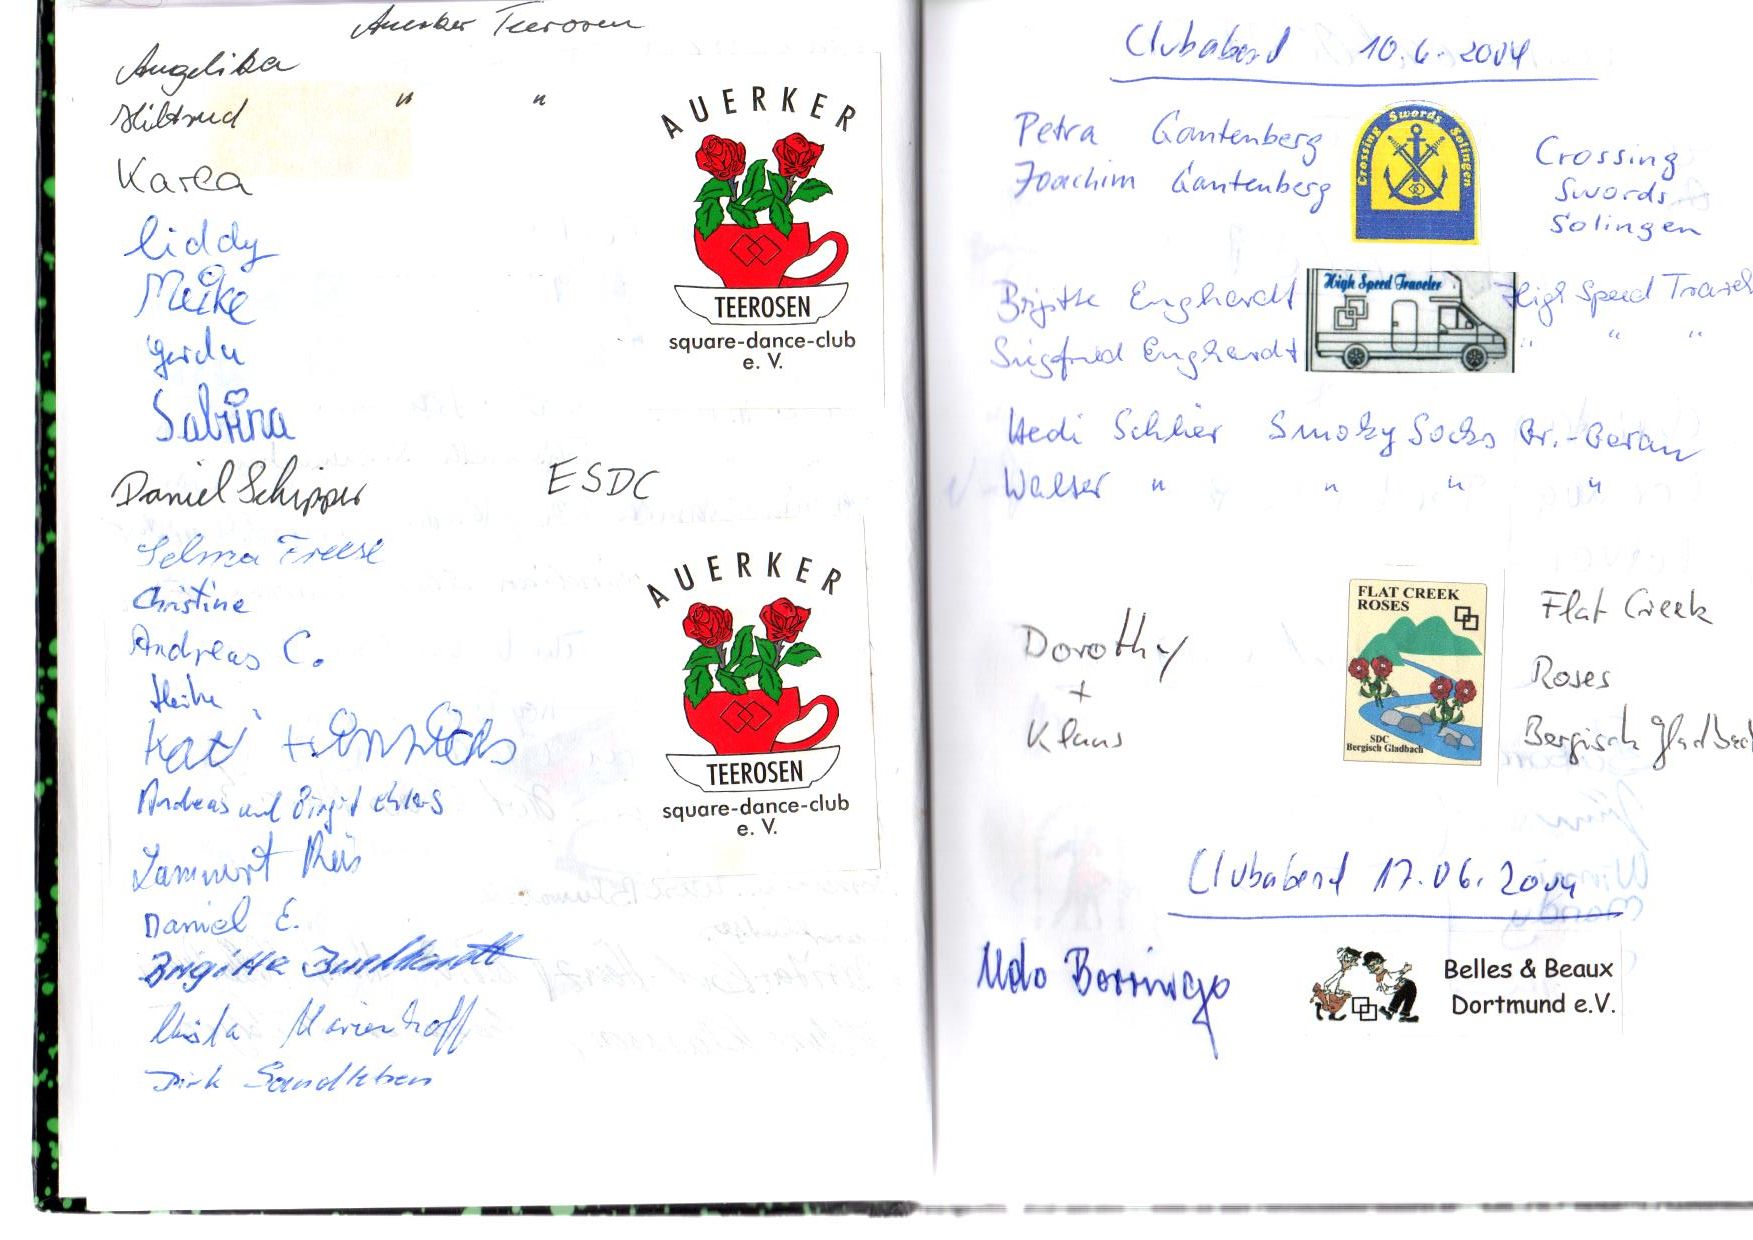 Auerker Teerosen
Angelika
Hiltrud " "
Karea
Liddy
Meike
Gerda
Sabrina
AUERKER
TEEROSEN
square-dance-club
e. V.
Daniel Schipper ESDC
Selma Freese
Christine
Andreas C.
Heike
Kati + Hinnerk
Andreas und Birgit Ehlers
Lammert
Daniel E.
Brigitte Burkhardt
Christa Marienhoff
Dirk Sandleben
AUERKER
TEEROSEN
square-dance-club
e. V.
Clubabend 10.6.2004
Petra Gantenberg
Joachim Gantenberg
Crossing Swords Solingen
Crossing
Swords
Solingen
Brigitte Enghardt
High Speed Traveler
High Speed Travel
Siegfried Enghardt " " "
Hedi Schlier Smoky Socks Gr.-Gerau
Walter " " " "
Dorothy
+
Klaus
FLAT CREEK
ROSES
SDC
Bergisch Gladbach
Flat Creek
Roses
Bergisch Gladbach
Clubabend 17.06.2004
Udo Borringo
Belles & Beaux
Dortmund e.V.